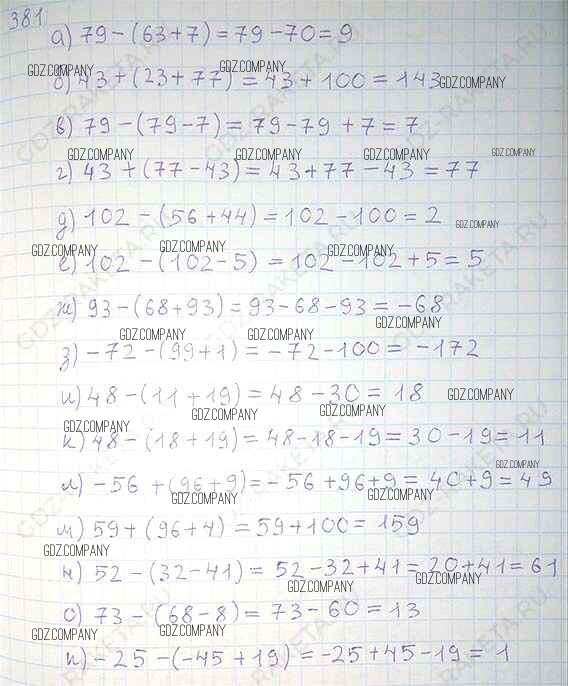 381.
а) 79 - (63 + 7) = 79 - 70 = 9
GDZ.COMPANY GDZ.COMPANY
б) 43 + (23 + 77) = 43 + 100 = 143 GDZ.COMPANY
в) 79 - (79 - 7) = 79 - 79 + 7 = 7
GDZ.COMPANY GDZ.COMPANY GDZ.COMPANY GDZ.COMPANY
г) 43 + (77 - 43) = 43 + 77 - 43 = 77
д) 102 - (56 + 44) = 102 - 100 = 2 GDZ.COMPANY
GDZ.COMPANY GDZ.COMPANY GDZ.COMPANY
е) 102 - (102 - 5) = 102 - 102 + 5 = 5
ж) 93 - (68 + 93) = 93 - 68 - 93 = -68
GDZ.COMPANY GDZ.COMPANY GDZ.COMPANY
з) -72 - (99 + 1) = -72 - 100 = -172
и) 48 - (11 + 19) = 48 - 30 = 18 GDZ.COMPANY
GDZ.COMPANY GDZ.COMPANY GDZ.COMPANY
к) 48 - (18 + 19) = 48 - 18 - 19 = 30 - 19 = 11
GDZ.COMPANY
л) -56 + (96 + 9) = -56 + 96 + 9 = 40 + 9 = 49
GDZ.COMPANY GDZ.COMPANY
м) 59 + (96 + 4) = 59 + 100 = 159
GDZ.COMPANY
н) 52 - (32 - 41) = 52 - 32 + 41 = 20 + 41 = 61
GDZ.COMPANY GDZ.COMPANY
о) 73 - (68 - 8) = 73 - 60 = 13
GDZ.COMPANY GDZ.COMPANY
п) -25 - (-45 + 19) = -25 + 45 - 19 = 1
GDZ-RAKETA.RU